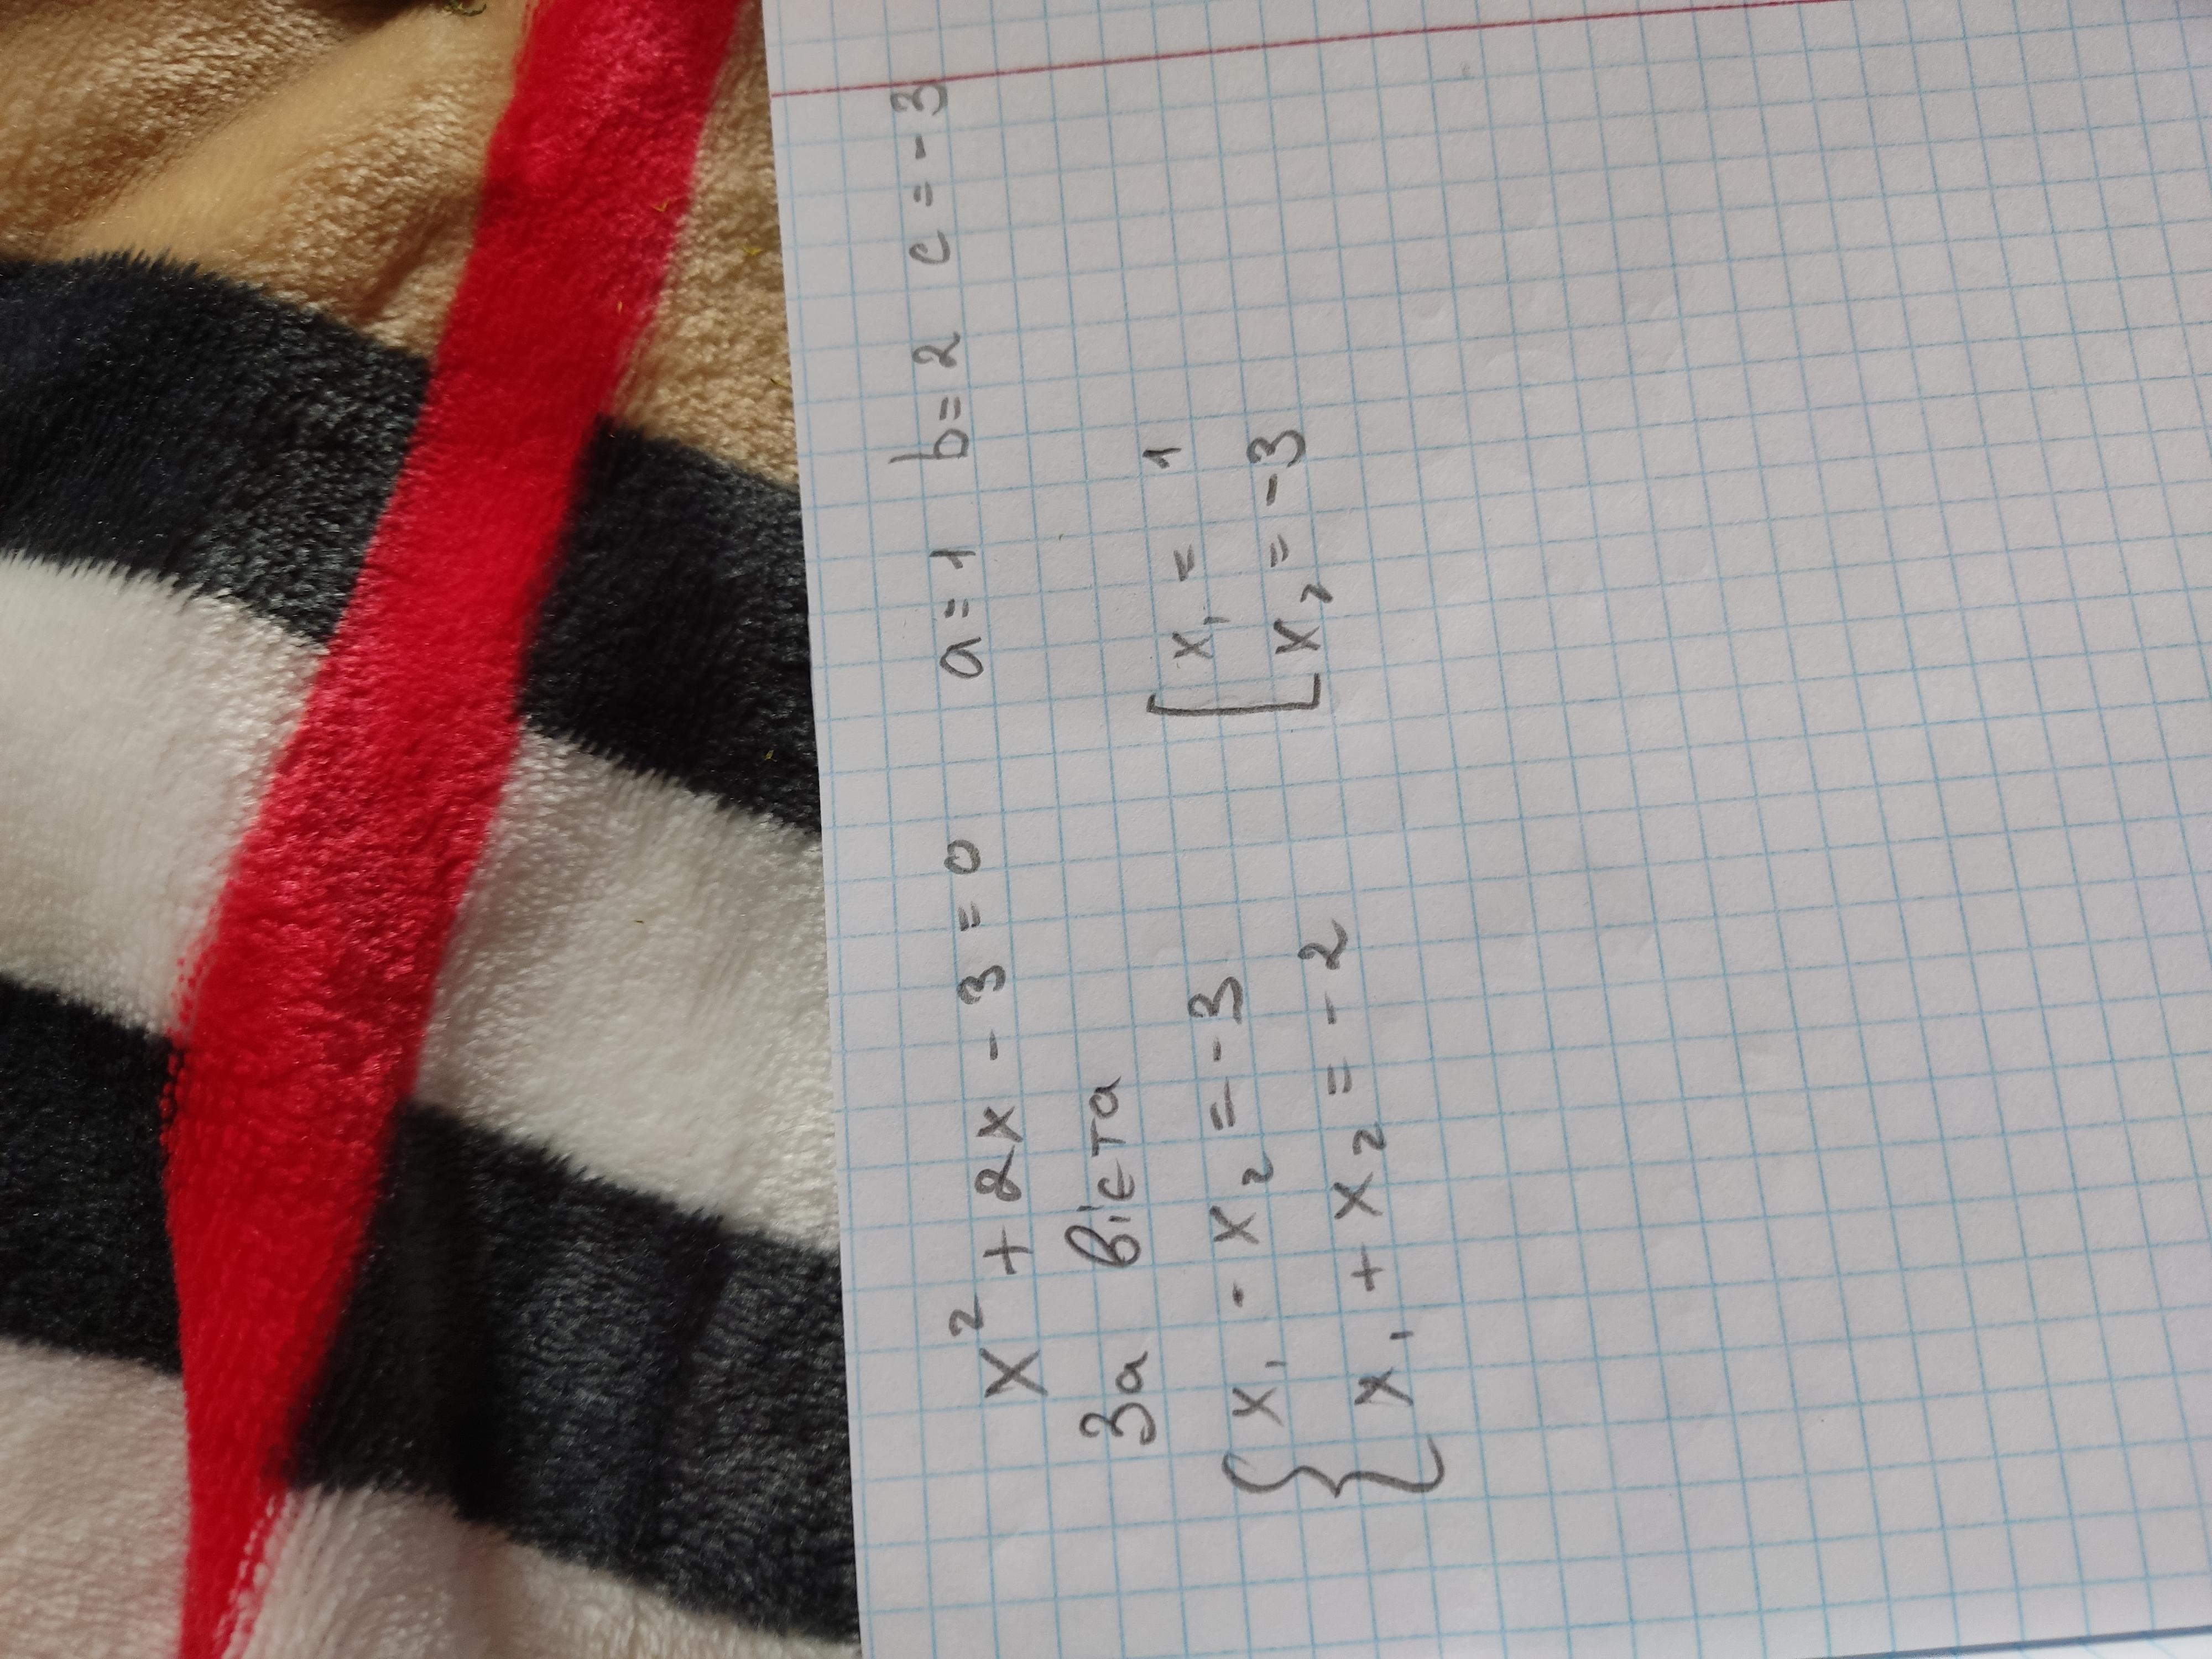 x² + 2x - 3 = 0 a = 1 b = 2 c = - 3
За Вієта
{ x₁ · x₂ = - 3 [ x₁ = 1
x₁ + x₂ = - 2 x₂ = - 3